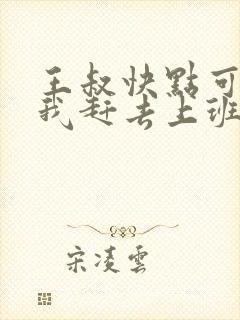 王叔快點可
我赶去上班
宋凌雲